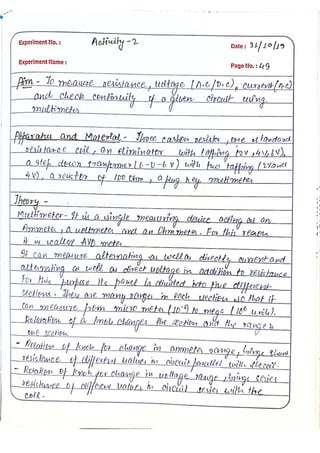 Experiment No. : Activity-2 Date : 31/10/19
Experiment Name : Page No. : 49
Aim - To measure resistance, voltage (A.C/D.C), current (A.C)
and check continuity of a given circuit using
multimeter
Apparatus and Material - Three carbon resistor, one standard
resistance coil, an eliminator with tapping (2V, 4V, 6V),
a step down tranformer (6-0-6V) with two tapping (2V and
4V), a resistor of 100 Ohm, a plug key multimeter
Theory -
Multimeter - It is a single measuring device acting as an
Ammeter, a voltmeter and an Ohmmeter. For this reason
it is called AVO meter.
It can measure alternating as well as directly current and
alternating as well as direct voltage in addition to resistance
For this purpose its panel is divided into five different
sections. There are many ranges in each section so that it
can measure from micro meter (10⁻⁶) to mega (10⁶ units).
Rotation of a knob changes the section and the range
the section
- Rotation of knob for change in ammeter range, brings shunt
resistance of different values in circuit parallel with the coil.
- Rotation of knob for change in voltage range, brings series
resistance of different values in circuit series with the
coil.